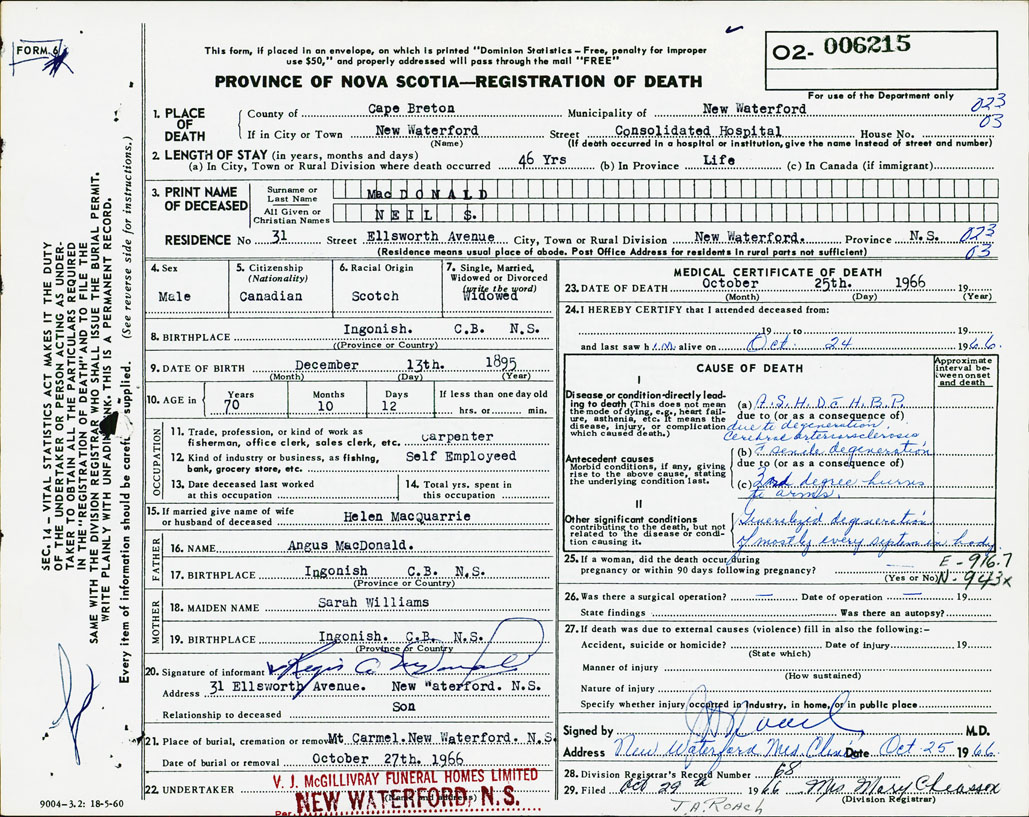 FORM 6
This form, if placed in an envelope, on which is printed "Dominion Statistics – Free, penalty for improper
use $50," and properly addressed will pass through the mail "FREE"
O2- 006215
For use of the Department only
PROVINCE OF NOVA SCOTIA—REGISTRATION OF DEATH
023
03
1. PLACE OF DEATH
County of Cape Breton Municipality of New Waterford
If in City or Town New Waterford Street Consolidated Hospital House No.
(Name) (If death occurred in a hospital or institution, give the name instead of street and number)
2. LENGTH OF STAY (in years, months and days)
(a) In City, Town or Rural Division where death occurred 46 Yrs (b) In Province Life (c) In Canada (if immigrant)
3. PRINT NAME OF DECEASED
Surname or Last Name MacDONALD
All Given or Christian Names NEIL S.
RESIDENCE No 31 Street Ellsworth Avenue City, Town or Rural Division New Waterford. Province N.S. 023
03
(Residence means usual place of abode. Post Office Address for residents in rural parts not sufficient)
4. Sex
Male
5. Citizenship
(Nationality)
Canadian
6. Racial Origin
Scotch
7. Single, Married,
Widowed or Divorced
(write the word)
Widowed
8. BIRTHPLACE Ingonish. C.B. N.S.
(Province or Country)
9. DATE OF BIRTH December 13th. 1895
(Month) (Day) (Year)
10. AGE in
Years 70
Months 10
Days 12
If less than one day old
hrs. or min.
OCCUPATION
11. Trade, profession, or kind of work as
fisherman, office clerk, sales clerk, etc. carpenter
12. Kind of industry or business, as fishing,
bank, grocery store, etc. Self Employeed
13. Date deceased last worked
at this occupation
14. Total yrs. spent in
this occupation
15. If married give name of wife
or husband of deceased Helen MacQuarrie
FATHER
16. NAME Angus MacDonald.
17. BIRTHPLACE Ingonish C.B. N.S.
(Province or Country)
MOTHER
18. MAIDEN NAME Sarah Williams
19. BIRTHPLACE Ingonish. C.B. N.S.
(Province or Country
20. Signature of informant Regis
Address 31 Ellsworth Avenue. New "aterford. N.S.
Relationship to deceased Son
21. Place of burial, cremation or removal Mt Carmel.New Waterford. N.S.
Date of burial or removal October 27th. 1966
22. UNDERTAKER V. J. McGILLIVRAY FUNERAL HOMES LIMITED
NEW WATERFORD, N. S.
(Name and address)
Per
9004-3.2: 18-5-60
MEDICAL CERTIFICATE OF DEATH
23. DATE OF DEATH October 25th. 1966
(Month) (Day) (Year)
24. I HEREBY CERTIFY that I attended deceased from:
19 to 19
and last saw him alive on Oct. 24 1966.
CAUSE OF DEATH
Approximate
interval be-
tween onset
and death
I
Disease or condition directly lead-
ing to death (This does not mean
the mode of dying, e.g., heart fail-
ure, asthenia, etc. It means the
disease, injury, or complication
which caused death.)
(a) A.S.H.D c H.B.P.
due to (or as a consequence of)
due to degeneration,
Cerebral arteriosclerosis
Antecedent causes
Morbid conditions, if any, giving
rise to the above cause, stating
the underlying condition last.
(b) c senile degeneration
due to (or as a consequence of)
(c) 2nd degree burns
to arms.
II
Other significant conditions
contributing to the death, but not
related to the disease or condi-
tion causing it.
Generalized degeneration
of mostly every system in body
25. If a woman, did the death occur during
pregnancy or within 90 days following pregnancy?
(Yes or No)
E - 916.7
N - 943x
26. Was there a surgical operation? — Date of operation — 19
State findings Was there an autopsy?
27. If death was due to external causes (violence) fill in also the following:–
Accident, suicide or homicide? Date of injury 19
(State which)
Manner of injury
(How sustained)
Nature of injury
Specify whether injury occurred in industry, in home, or in public place
Signed by M.D.
Address New Waterford Med. Clinic Date Oct 25 1966.
28. Division Registrar's Record Number 68
29. Filed Oct 29 th 1966 Mrs Mary
(Division Registrar)
J.A. ROACH
SEC. 14 – VITAL STATISTICS ACT MAKES IT THE DUTY
OF THE UNDERTAKER OR PERSON ACTING AS UNDER-
TAKER TO OBTAIN ALL THE PARTICULARS REQUIRED
IN THE "REGISTRATION OF DEATH" AND TO FILE THE
SAME WITH THE DIVISION REGISTRAR WHO SHALL ISSUE THE BURIAL PERMIT.
WRITE PLAINLY WITH UNFADING INK. THIS IS A PERMANENT RECORD.
Every item of information should be carefully supplied. (See reverse side for instructions.)